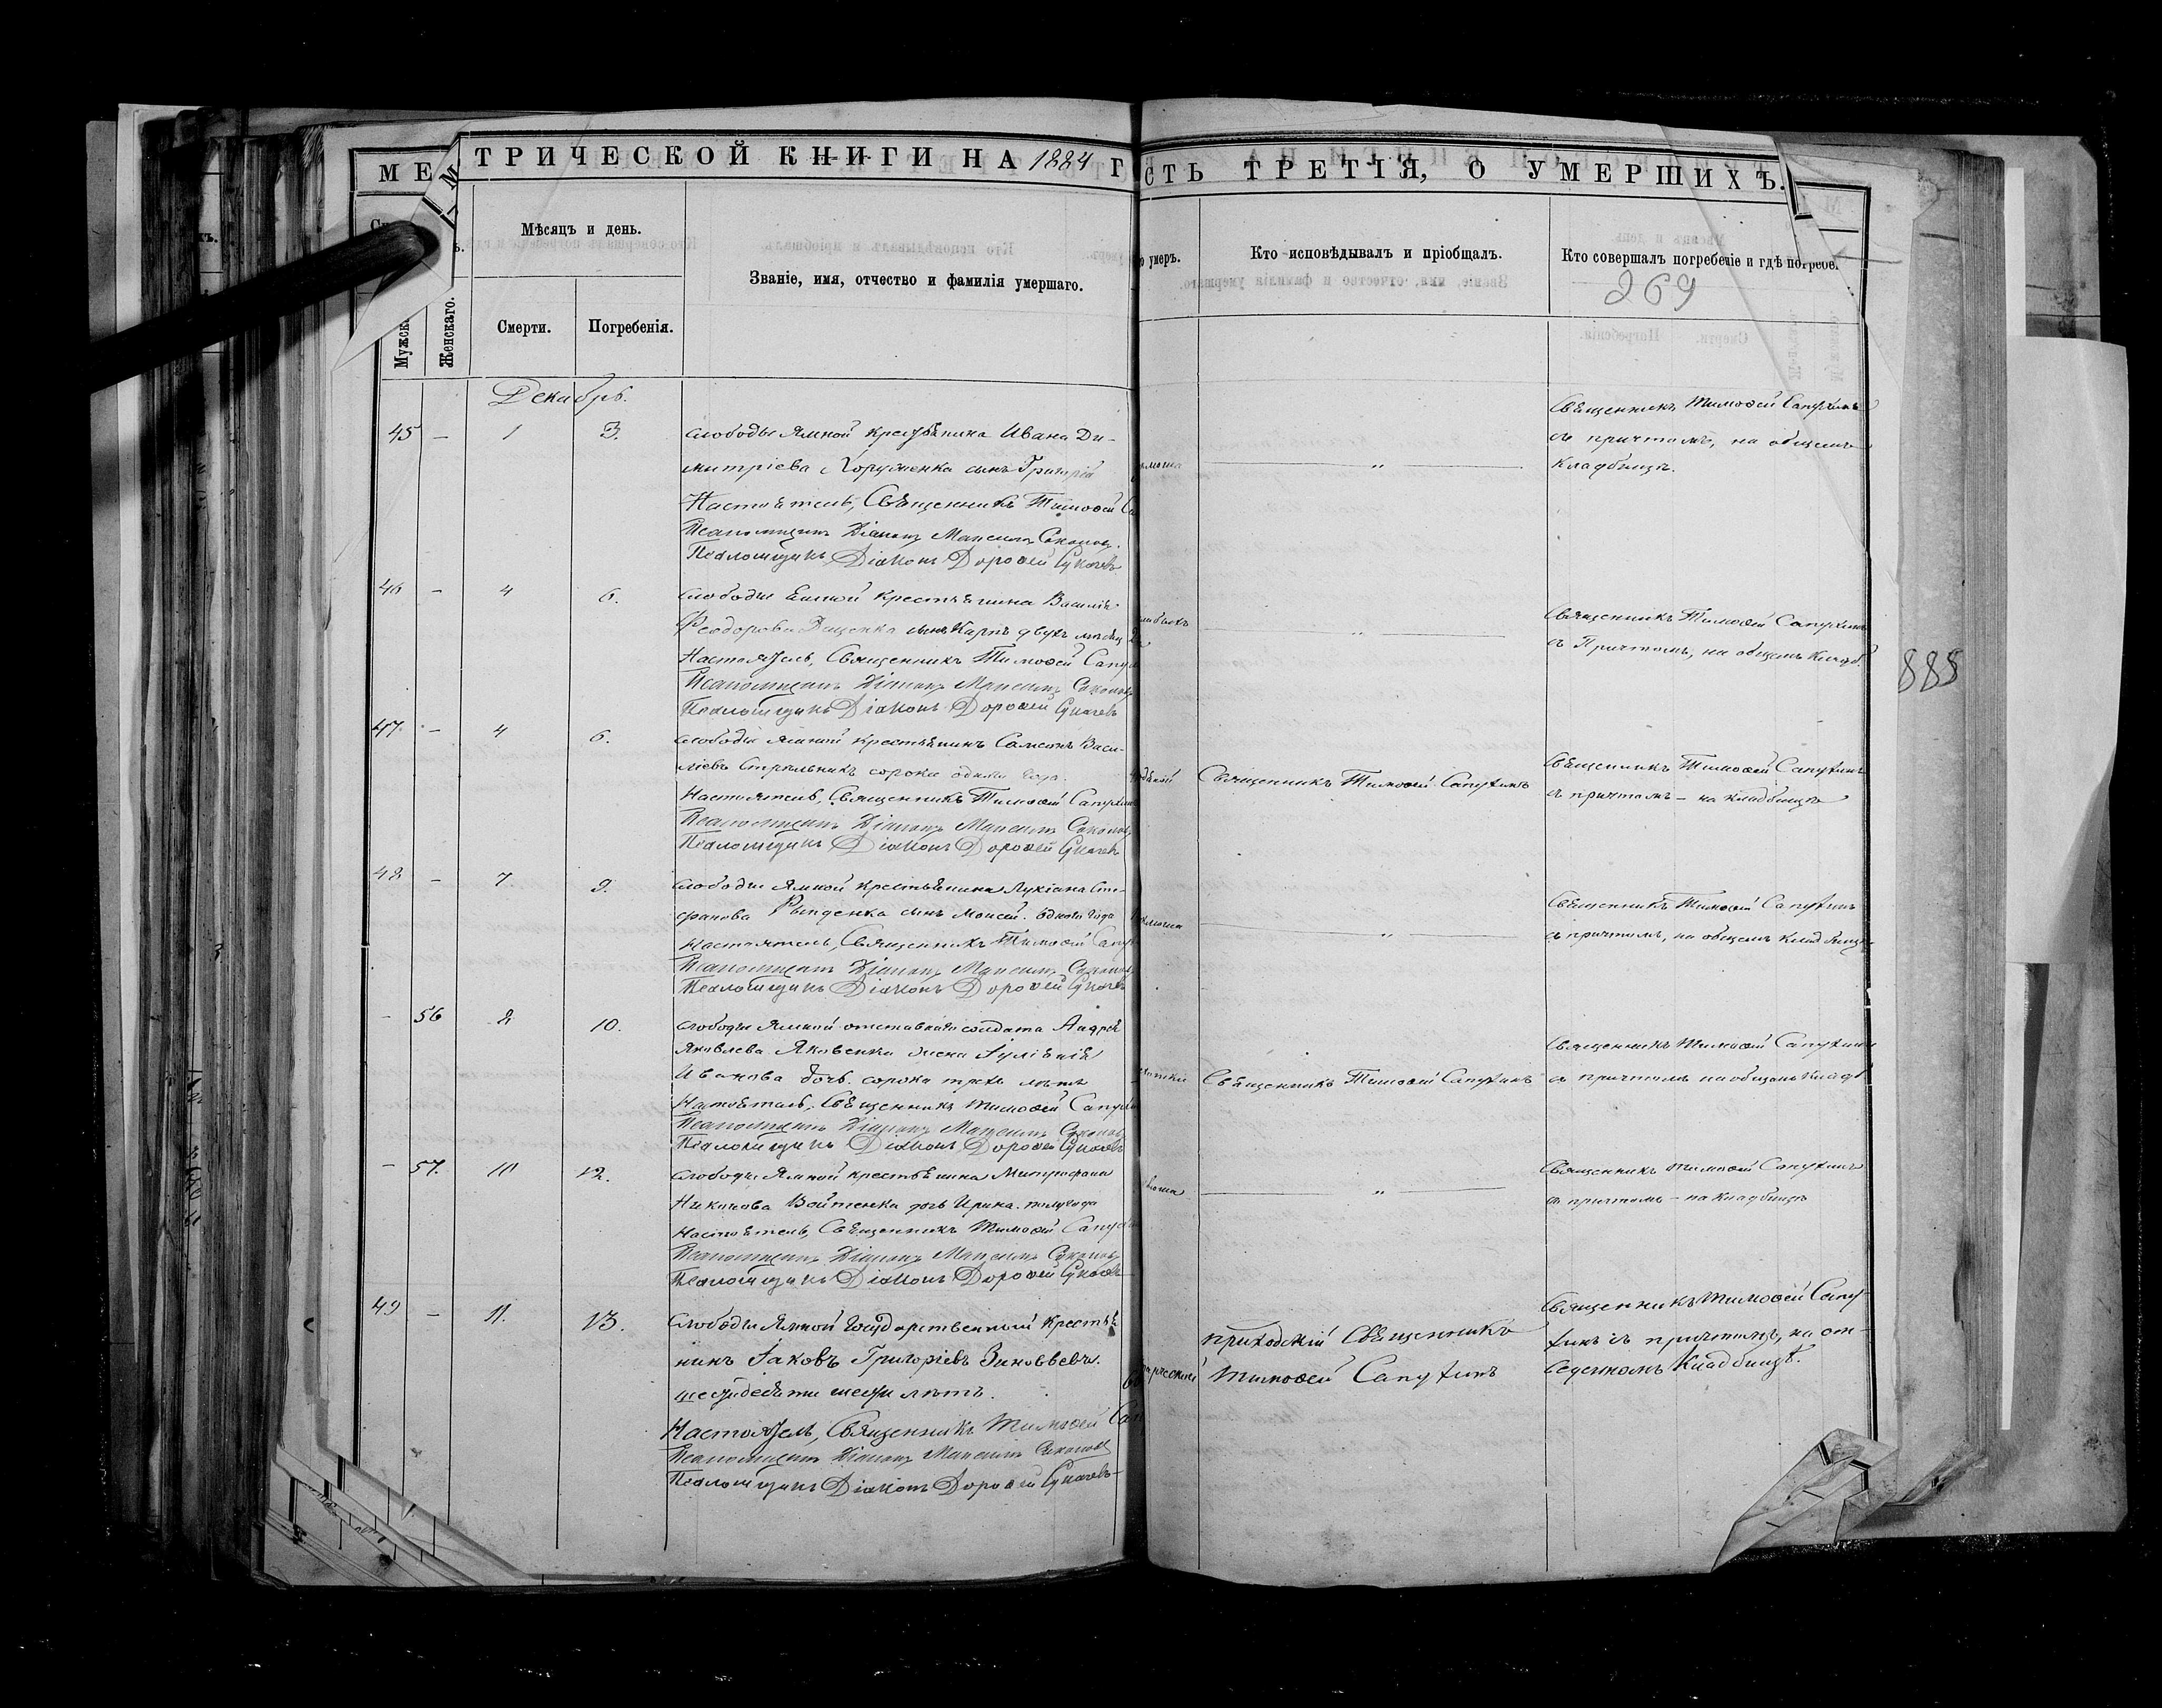 МЕ
МЕТРИЧЕСКОЙ КНИГИ НА 1884 Г
СТЬ ТРЕТІЯ, О УМЕРШИХЪ.
Мужска
Женскаго.
Мѣсяцъ и день.
Смерти.
Погребенія.
Званіе, имя, отчество и фамилія умершаго.
умеръ.
Кто исповѣдывалъ и пріобщалъ.
Кто совершалъ погребеніе и гдѣ погребе.
269
888
Декабрь.
45 – 1 3.
слободы Ямной крестьянина Ивана Ди-
митріева сынъ Григорій
Настоятель, Священникъ Тимоѳей
Псаломщикъ Діаконъ
Псаломщикъ Діаконъ Дороѳей Сукачевъ
„
Священникъ Тимоѳей Сапухинъ
съ причтомъ, на общемъ
кладбищѣ.
46 – 4 6.
слободы Ямной крестьянина Василія
Ѳеодорова сынъ Карпъ двухъ мѣсяц
Настоятель, Священникъ Тимоѳей Сапух
Псаломщикъ Діаконъ
Псаломщикъ Діаконъ Дороѳей Сукачевъ
„
Священникъ Тимоѳей Сапухинъ
съ Причтомъ, на общемъ кладб.
47 – 4 6.
слободы Ямной крестьянинъ Самсонъ Васи-
ліевъ Стрельникъ сорока одного года.
Настоятель, Священникъ Тимоѳей Сапухин
Псаломщикъ Діаконъ
Псаломщикъ Діаконъ Дороѳей Сукачевъ
Священникъ Тимоѳей Сапухинъ
Священникъ Тимоѳей Сапухинъ
съ причтомъ – на кладбищѣ
48 – 7 9.
слободы Ямной крестьянина Лукіана Сте-
фанова сынъ Моисей. одного года
Настоятель, Священникъ Тимоѳей Сапу
Псаломщикъ Діаконъ
Псаломщикъ Діаконъ Дороѳей Сукачевъ
„
Священникъ Тимоѳей Сапухинъ
съ причтомъ, на общемъ кладбищѣ
– 56 8 10.
слободы Ямной отставнаго солдата Андрея
Яковлева Яковенка жена Іуліанія
Иванова дочь. сорока трехъ лѣтъ
Настоятель, Священникъ Тимоѳей Сапухи
Псаломщикъ Діаконъ
Псаломщикъ Діаконъ Дороѳей Сукачевъ
Священникъ Тимоѳей Сапухинъ
Священникъ Тимоѳей Сапухинъ
съ причтомъ на общемъ кладб
– 57. 10 12.
слободы Ямной крестьянина Митрофана
Войтенка дочь Ирина. полугода
Настоятель, Священникъ Тимоѳей Сапух
Псаломщикъ Діаконъ
Псаломщикъ Діаконъ Дороѳей Сукачевъ
„
Священникъ Тимоѳей Сапухинъ
съ причтомъ – на кладбищѣ
49 – 11. 13.
Слободы Ямной Государственный крестья
нинъ Іаковъ Григоріевъ Зиновьевъ.
шестидесяти шести лѣтъ.
Настоятель, Священникъ Тимоѳей Сап
Псаломщикъ Діаконъ
Псаломщикъ Діаконъ Дороѳей Сукачевъ
приходскій Священникъ
Тимоѳей Сапухинъ
Священникъ Тимоѳей Сапу-
хинъ съ причтомъ, на от-
веденномъ кладбищѣ.